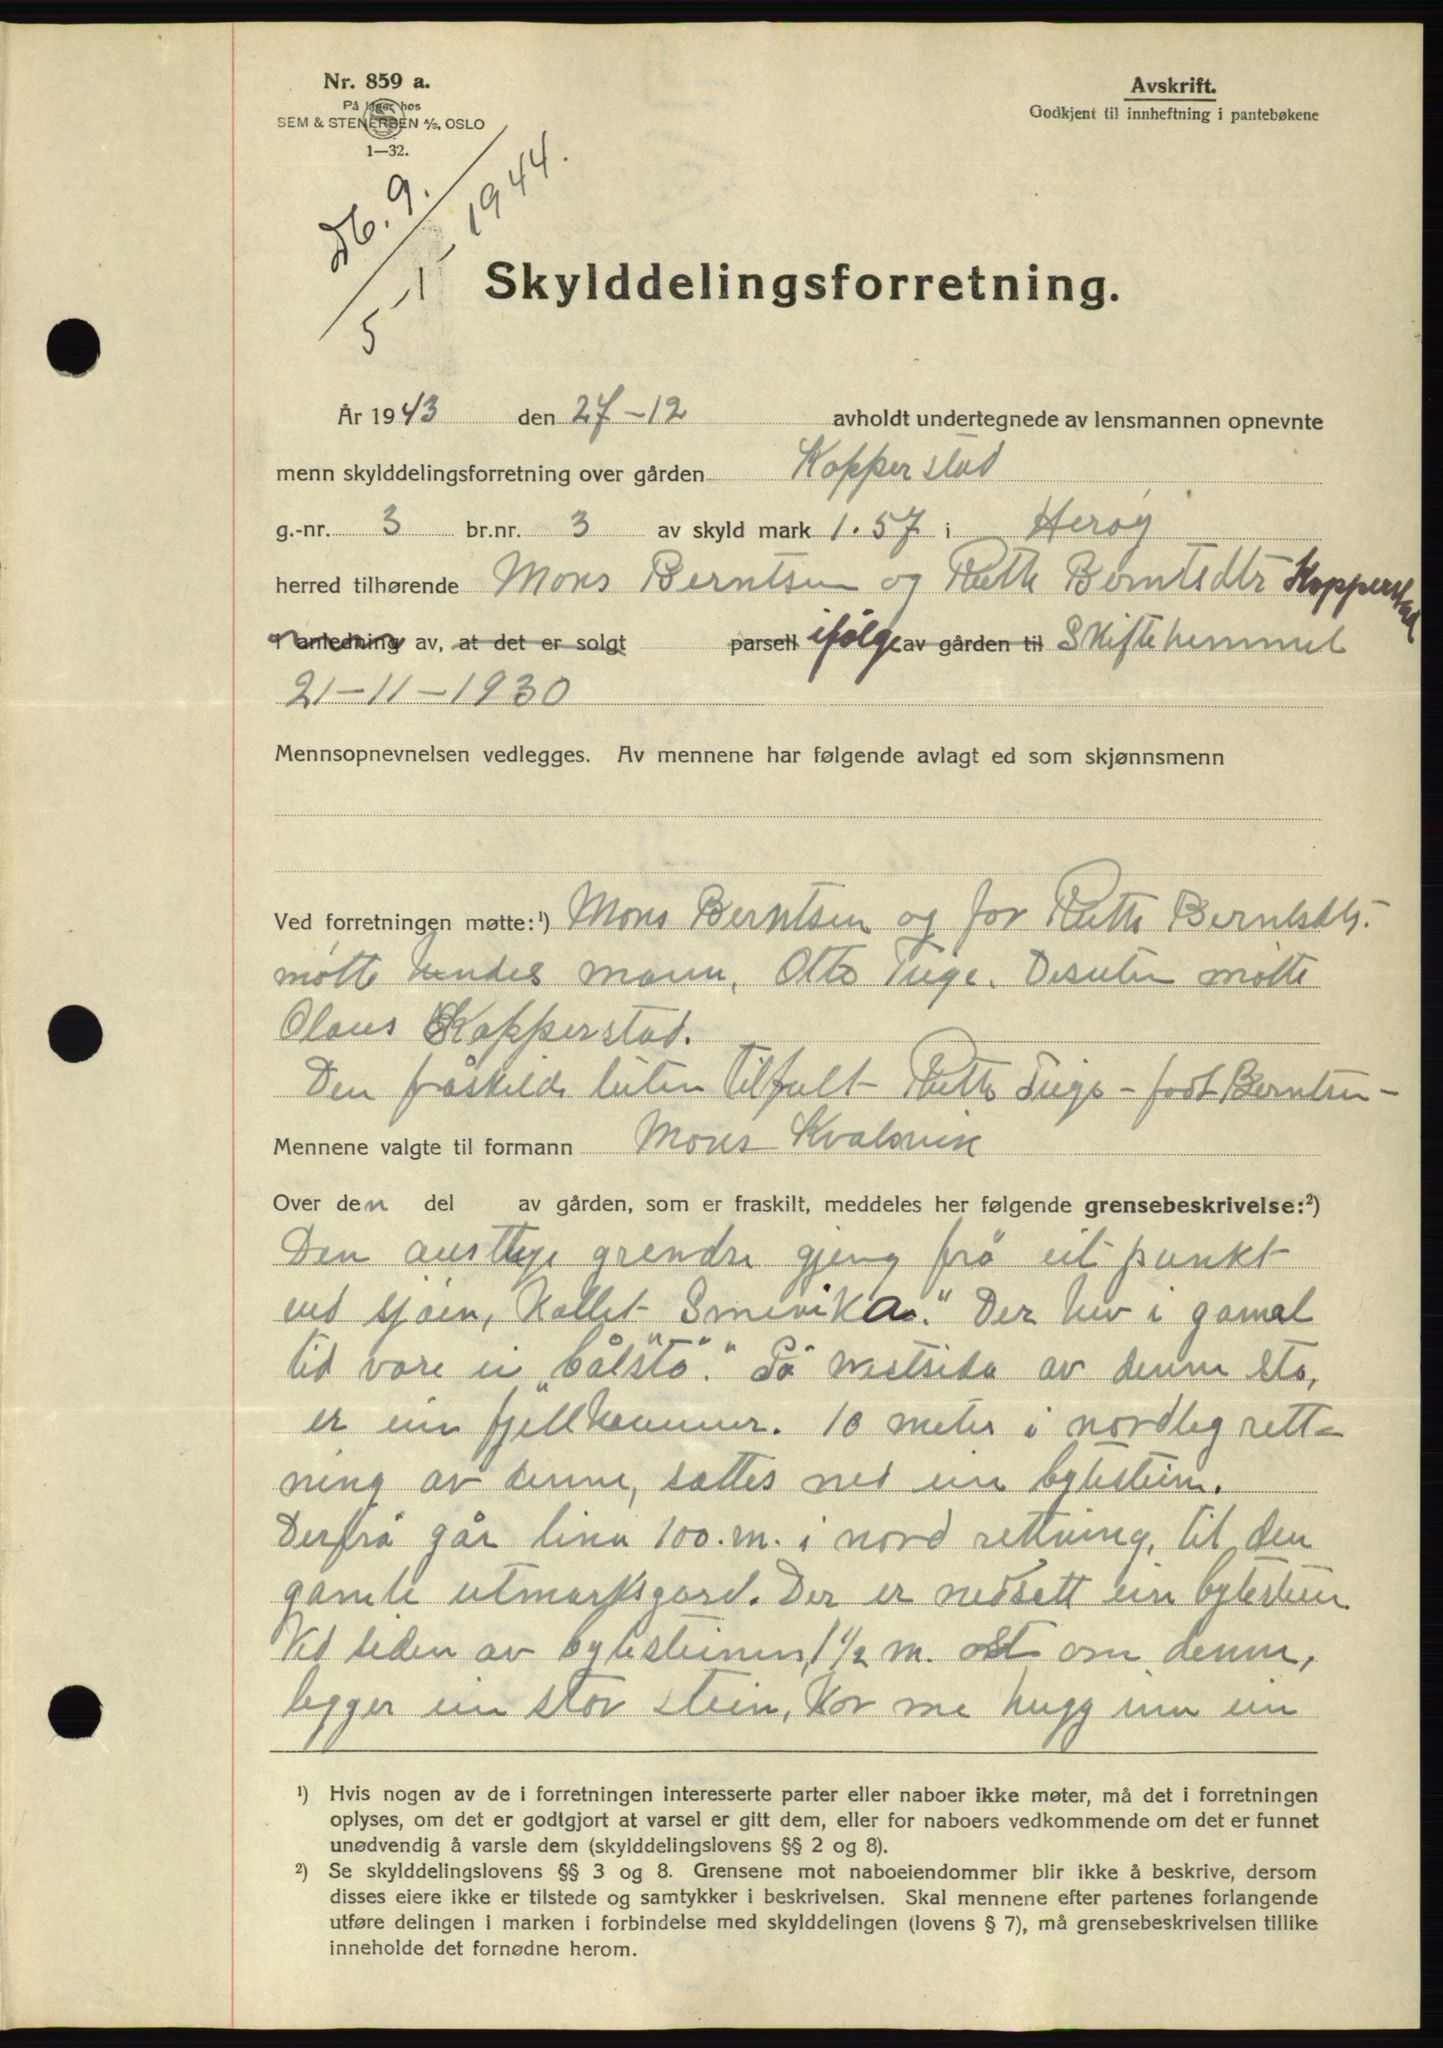 Nr. 859 a.
På lager hos
SEM & STENERSEN A/S, OSLO
1—32.
Avskrift.
Godkjent til innheftning i pantebøkene
Db. 9.
5/1 1944.
Skylddelingsforretning.
År 1943 den 27-12 avholdt undertegnede av lensmannen opnevnte
menn skylddelingsforretning over gården Kopperstad
g.-nr. 3 br.nr. 3 av skyld mark 1.57 i Herøy
herred tilhørende Mons Berntsen og Ruth Berntsdtr Kopperstad
i anledning av, at det er solgt parsell ifølge av gården til Skifte
21-11-1930
Mennsopnevnelsen vedlegges. Av mennene har følgende avlagt ed som skjønnsmenn
Ved forretningen møtte:¹) Mons Berntsen og for Ruth Berntsdtr.
møtte hendes mann, Otto Desuten møtte
Olaus Kopperstad.
Den fråskilde luten tilfalt Ruth - født Berntsen -
Mennene valgte til formann Mons Kvalsvik
Over den del av gården, som er fraskilt, meddeles her følgende grensebeskrivelse:²)
Den austlege grendse gjeng frå eit punkt
ved sjøen, kallet Smevika." Der hev i gamal
tid vore ei „bålstø". På vestsida av denne stø,
er ein fjellhammer. 10 meter i nordleg rett-
ning av denne, sattes ned ein bytestein.
Derfrå går lina 100. m. i nord rettning, til den
gamle utmarksgard. Der er nedsett ein bytestein
Ved siden av bytesteinen, 1 1/2 m. ost om denne,
legger ein stor stein, kor me hugg inn ein
¹) Hvis nogen av de i forretningen interesserte parter eller naboer ikke møter, må det i forretningen
oplyses, om det er godtgjort at varsel er gitt dem, eller for naboers vedkommende om det er funnet
unødvendig å varsle dem (skylddelingslovens §§ 2 og 8).
²) Se skylddelingslovens §§ 3 og 8. Grensene mot naboeiendommer blir ikke å beskrive, dersom
disses eiere ikke er tilstede og samtykker i beskrivelsen. Skal mennene efter partenes forlangende
utføre delingen i marken i forbindelse med skylddelingen (lovens § 7), må grensebeskrivelsen tillike
inneholde det fornødne herom.